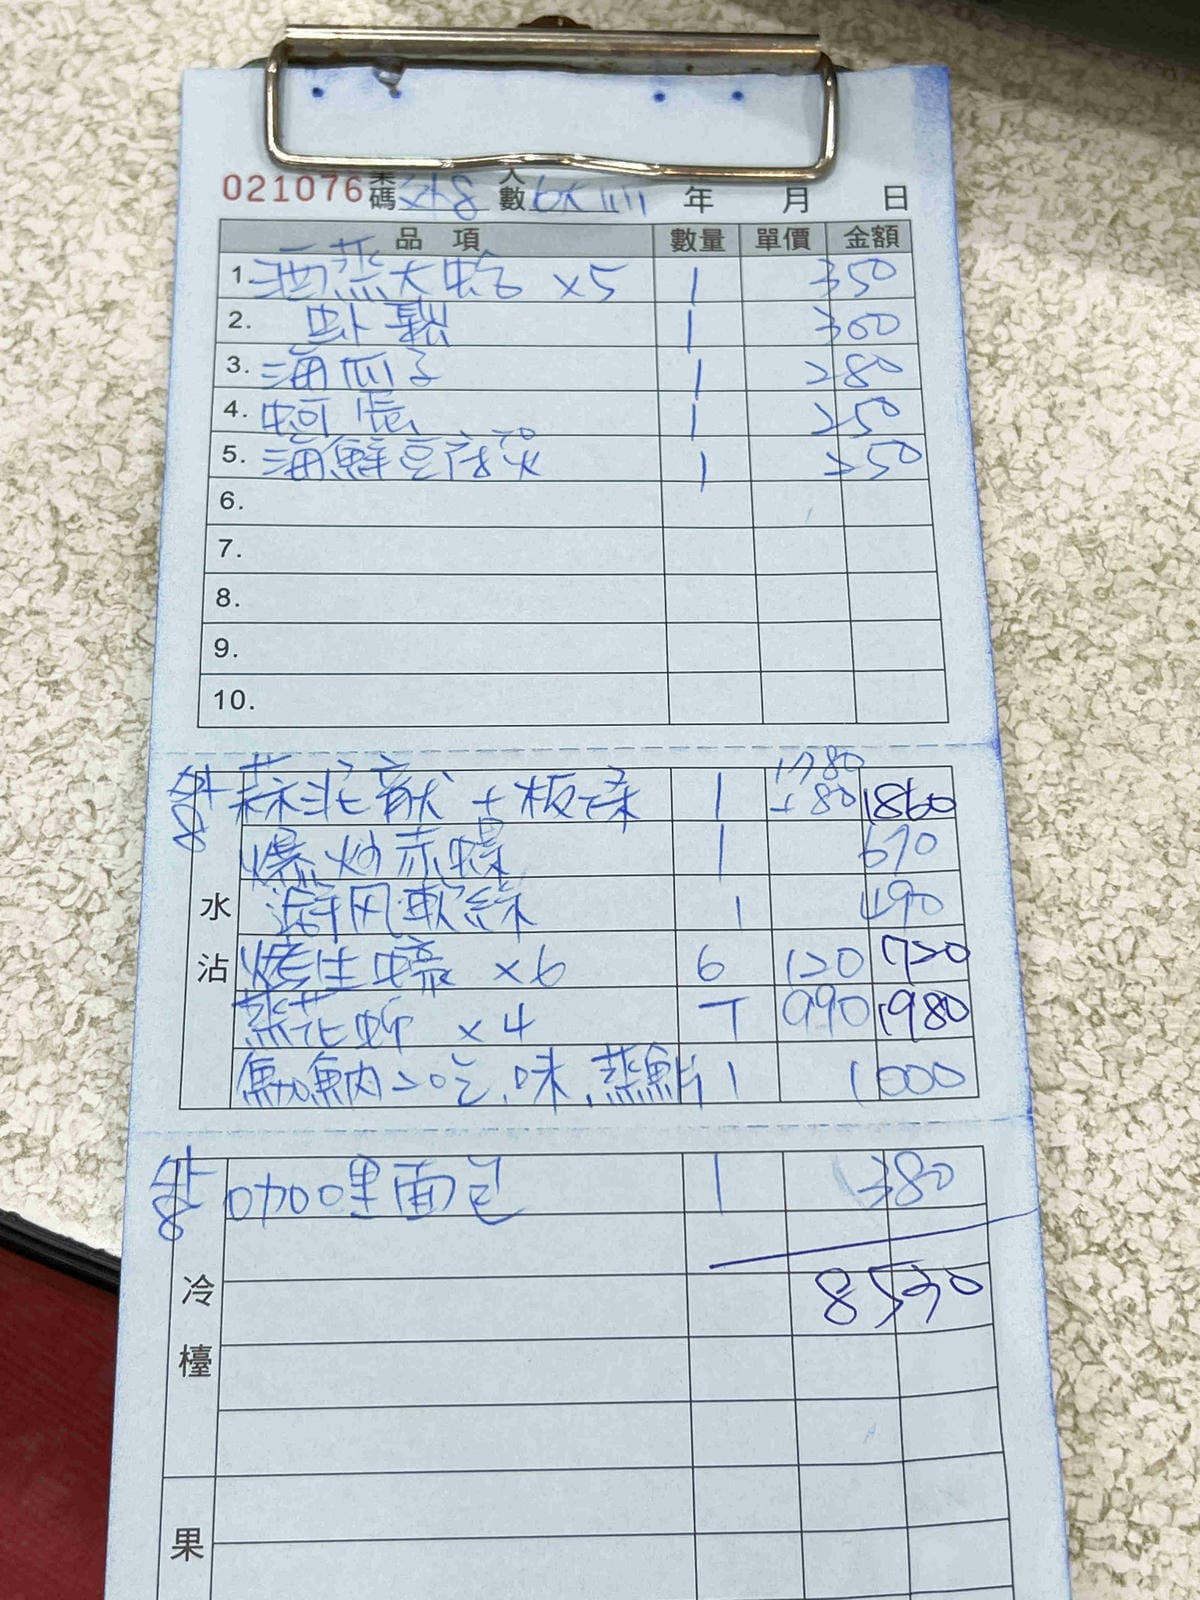 021076 桌碼 外8 人數 6大 年 月 日
品 項 數量 單價 金額
1. 酒蒸大蛤 x5 1 350
2. 蚵鬆 1 300
3. 海瓜子 1 280
4. 蚵 1 250
5. 海鮮豆腐 1 250
6.
7.
8.
9.
10.
外8
1780
蒜泥 + 板條 1 +80 1860
爆炒赤 1 670
避風軟絲 1 490
水沾
烤生蠔 x6 6 120 720
蒸花 x4 T 990 1980
魚內二吃 味 蒸 1 1000
外8
咖哩面包 1 380
8530
冷檯
果